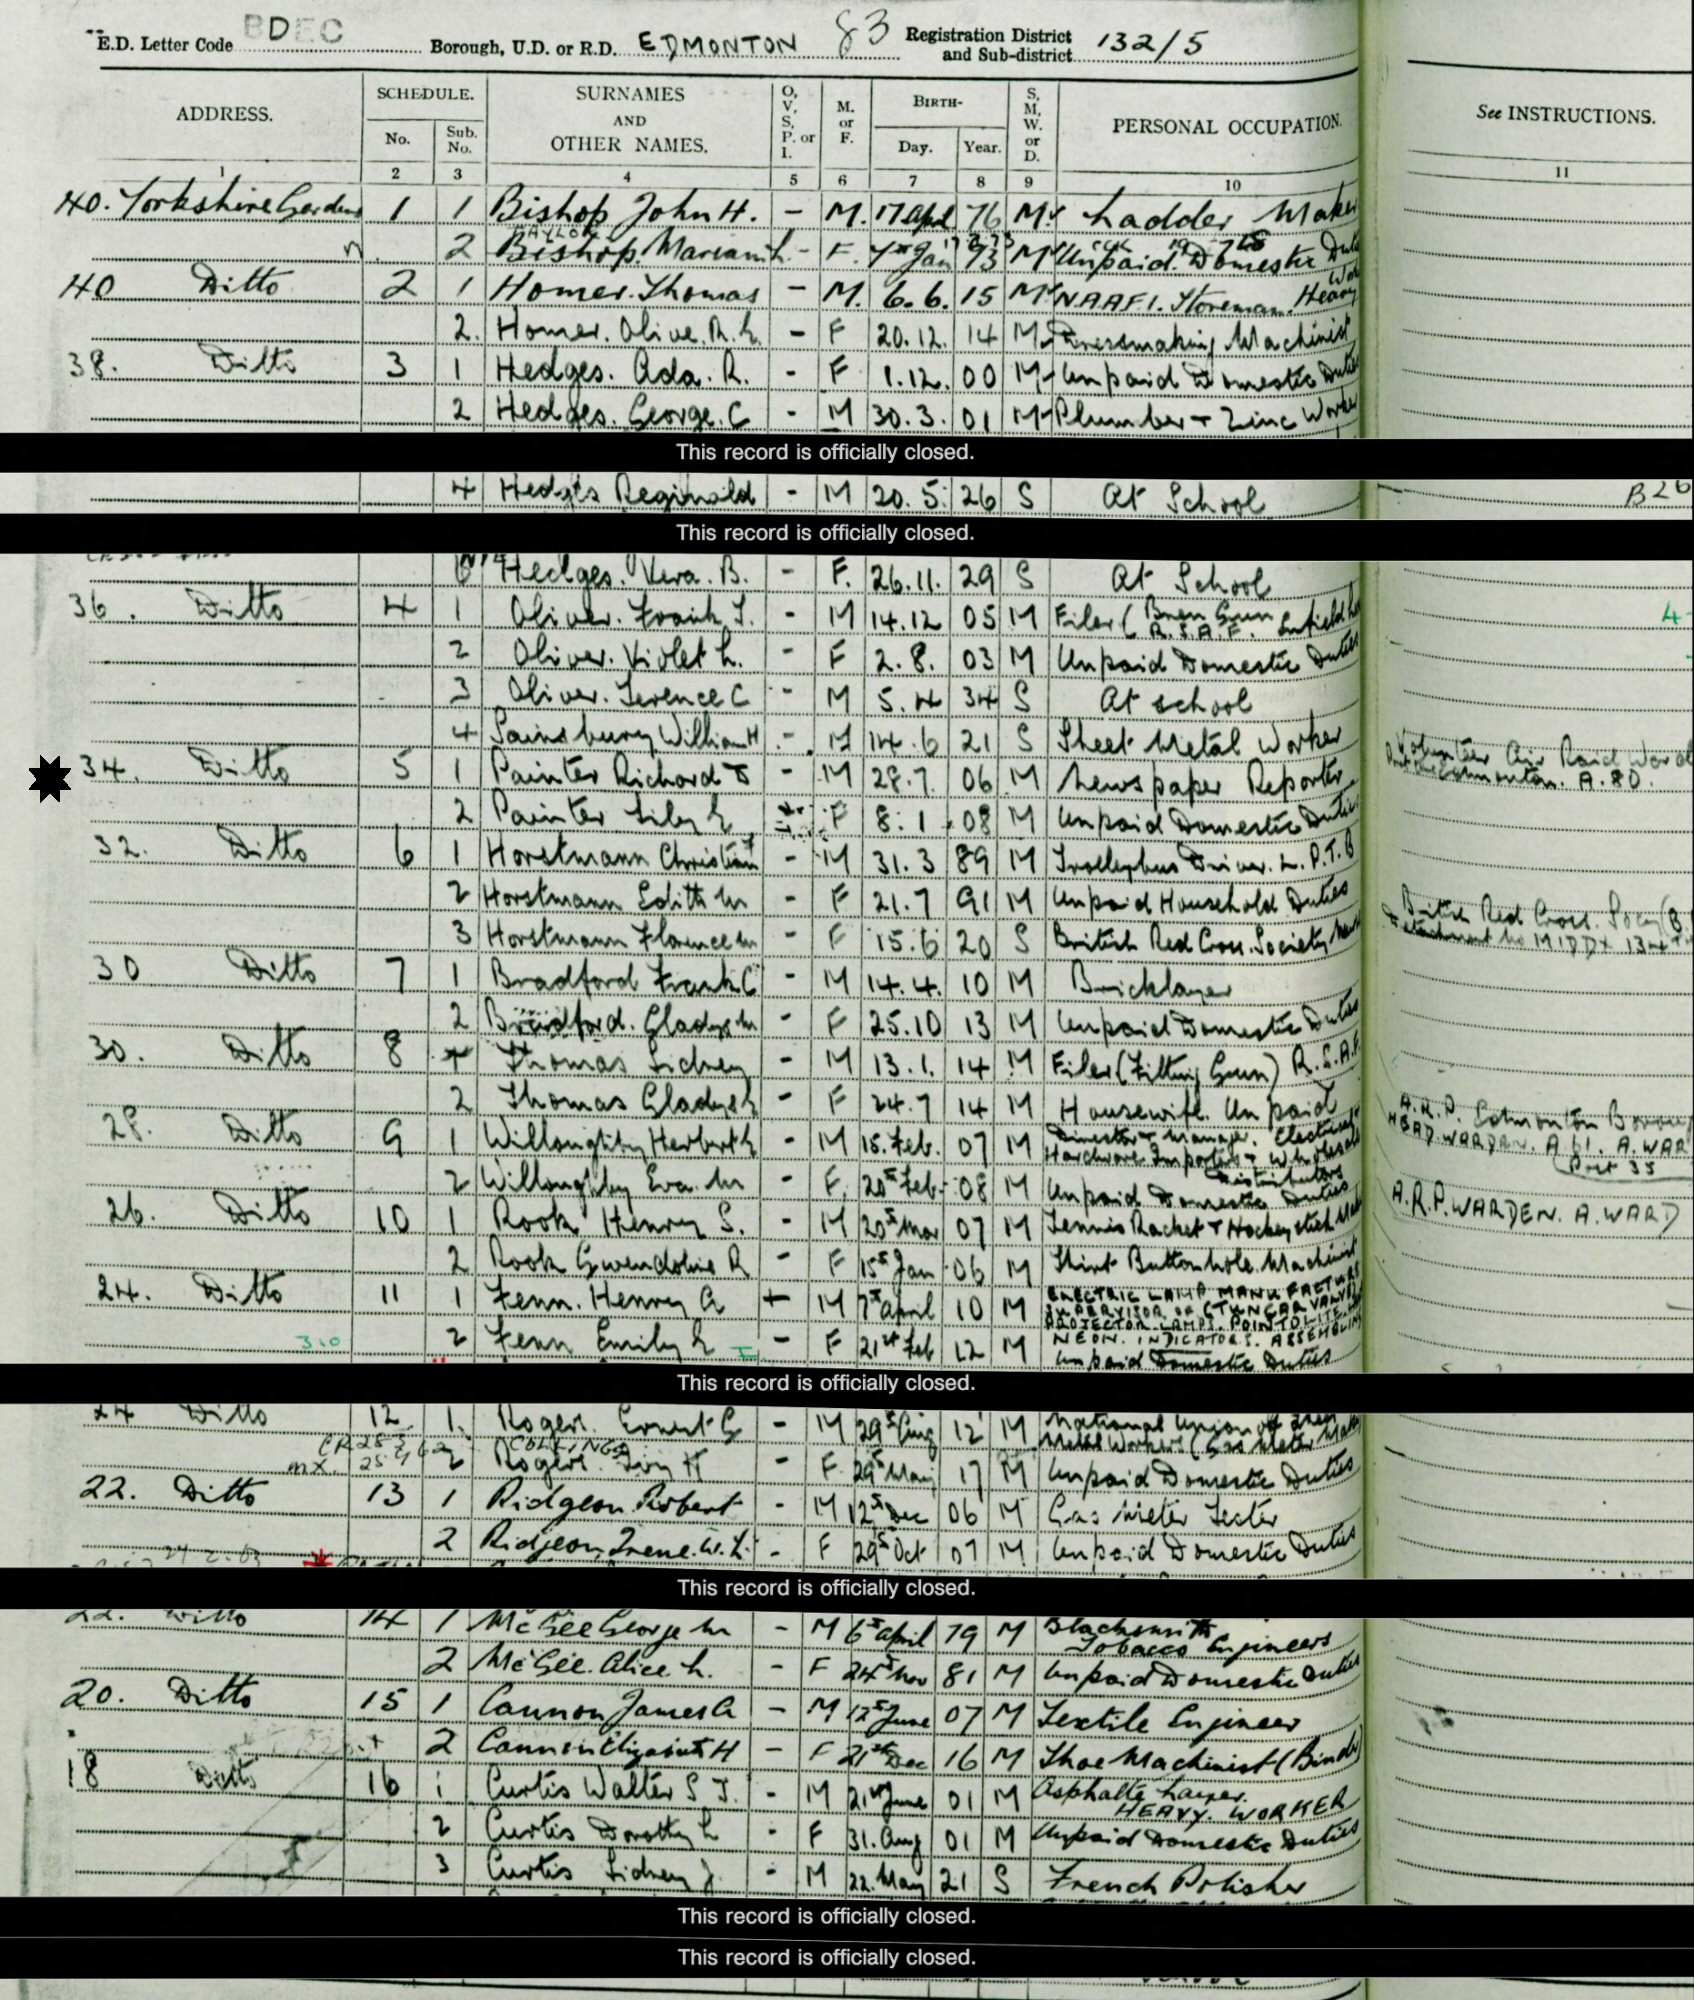 E.D. Letter Code BDEC Borough, U.D. or R.D. EDMONTON 83 Registration District and Sub-district 132/5
ADDRESS. SCHEDULE. No. Sub. No. SURNAMES AND OTHER NAMES. O, V, S, P. or I. M. or F. BIRTH- Day. Year. S, M, W. or D. PERSONAL OCCUPATION. See INSTRUCTIONS.
1 2 3 4 5 6 7 8 9 10 11
40. Yorkshire Gardens 1 1 Bishop John H. - M. 17 Apl 76 M. Ladder Maker
2 Bishop. Mariam L. - F. 7th Jan 73 M Unpaid Domestic Duties
40 Ditto 2 1 Homer. Thomas - M. 6.6. 15 M NAAFI. Storeman. Heavy Work
2. Homer. Olive. R. E. - F 20.12. 14 M Dressmaking Machinist
38. Ditto 3 1 Hedges. Ada. R. - F 1.12. 00 M Unpaid Domestic Duties
2 Hedges. George. C - M 30.3. 01 M Plumber + Zinc Worker
This record is officially closed.
4 Hedges Reginald - M 20.5. 26 S At School B26
This record is officially closed.
6 Hedges. Vera. B. - F. 26.11. 29 S At School
36. Ditto 4 1 Oliver. Frank J. - M 14.12 05 M Filer (Bren Gun R.S.A.F. Enfield 4
2 Oliver. Violet L. - F 2.8. 03 M Unpaid Domestic Duties
3 Oliver. Terence C - M 5.4 34 S At school
4 Sainsbury William H. - M 14.6 21 S Sheet Metal Worker
34. Ditto 5 1 Painter Richard - M 28.7 06 M Newspaper Reporter Volunteer Air Raid Edmonton. A.80.
2 Painter Lily E F 8.1 08 M Unpaid Domestic Duties
32. Ditto 6 1 Horstmann Christian - M 31.3 89 M Trolleybus Driver. L.P.T.B
2 Horstmann Edith M - F 21.7 91 M Unpaid Household Duties
3 Horstmann Florence M - F 15.6 20 S British Red Cross. Society British Red Cross. Detachment No MIDDX 134
30 Ditto 7 1 Bradford Frank C - M 14.4. 10 M Bricklayer
2 Bradford. Gladys M - F 25.10 13 M Unpaid Domestic Duties
30. Ditto 8 1 Thomas Sidney - M 13.1. 14 M Filer (Fitting Gun) R.S.A.F.
2 Thomas Gladys E - F 24.7 14 M Housewife. Unpaid
28. Ditto 9 1 Willoughby Herbert E - M 15. Feb. 07 M Director + Manager. Electrical Hardware Importers + Wholesale Distributors A.R.P. Edmonton Borough HEAD WARDEN. A 61. A. WARD Post 35
2 Willoughby Eva. M - F. 20th Feb. 08 M Unpaid Domestic Duties
26. Ditto 10 1 Rook Henry S. - M 20th Mar 07 M Tennis Racket + Hockey stick A.R.P. WARDEN. A. WARD
2 Rook Gwendoline R - F 15th Jan 06 M Shirt Buttonhole Machinist
24. Ditto 11 1 Fenn. Henry A + M 7th April 10 M ELECTRIC LAMP MANUFACTURE SUPERVISOR OF PROJECTOR LAMPS. POINTOLITE. NEON. INDICATORS. ASSEMBLING
2 Fenn Emily E - F 21st Feb 12 M Unpaid Domestic Duties
This record is officially closed.
24 Ditto 12 1. Rogers. Ernest G - M 29th Aug 12 M National Union of Sheet Metal Workers (Gas Meter
2 Rogers. Ivy H - F 29th May 17 M Unpaid Domestic Duties
22. Ditto 13 1 Ridgeon. Robert - M 12th Dec 06 M Gas Meter Tester
2 Ridgeon. Irene. W. L. - F 29th Oct 07 M Unpaid Domestic Duties
This record is officially closed.
22. Ditto 14 1 McGee George M - M 6th April 79 M Blacksmith Tobacco Engineers
2 McGee. Alice L. - F 24th Nov 81 M Unpaid Domestic Duties
20. Ditto 15 1 Cannon James A - M 12th June 07 M Textile Engineer
2 Cannon Elizabeth H - F 21st Dec 16 M Shoe Machinist (Binder)
18 Ditto 16 1 Curtis Walter S J. - M 21st June 01 M Asphalte Layer. HEAVY. WORKER
2 Curtis Dorothy L - F 31. Aug 01 M Unpaid Domestic Duties
3 Curtis Sidney J. - M 22. May 21 S French Polisher
This record is officially closed.
This record is officially closed.